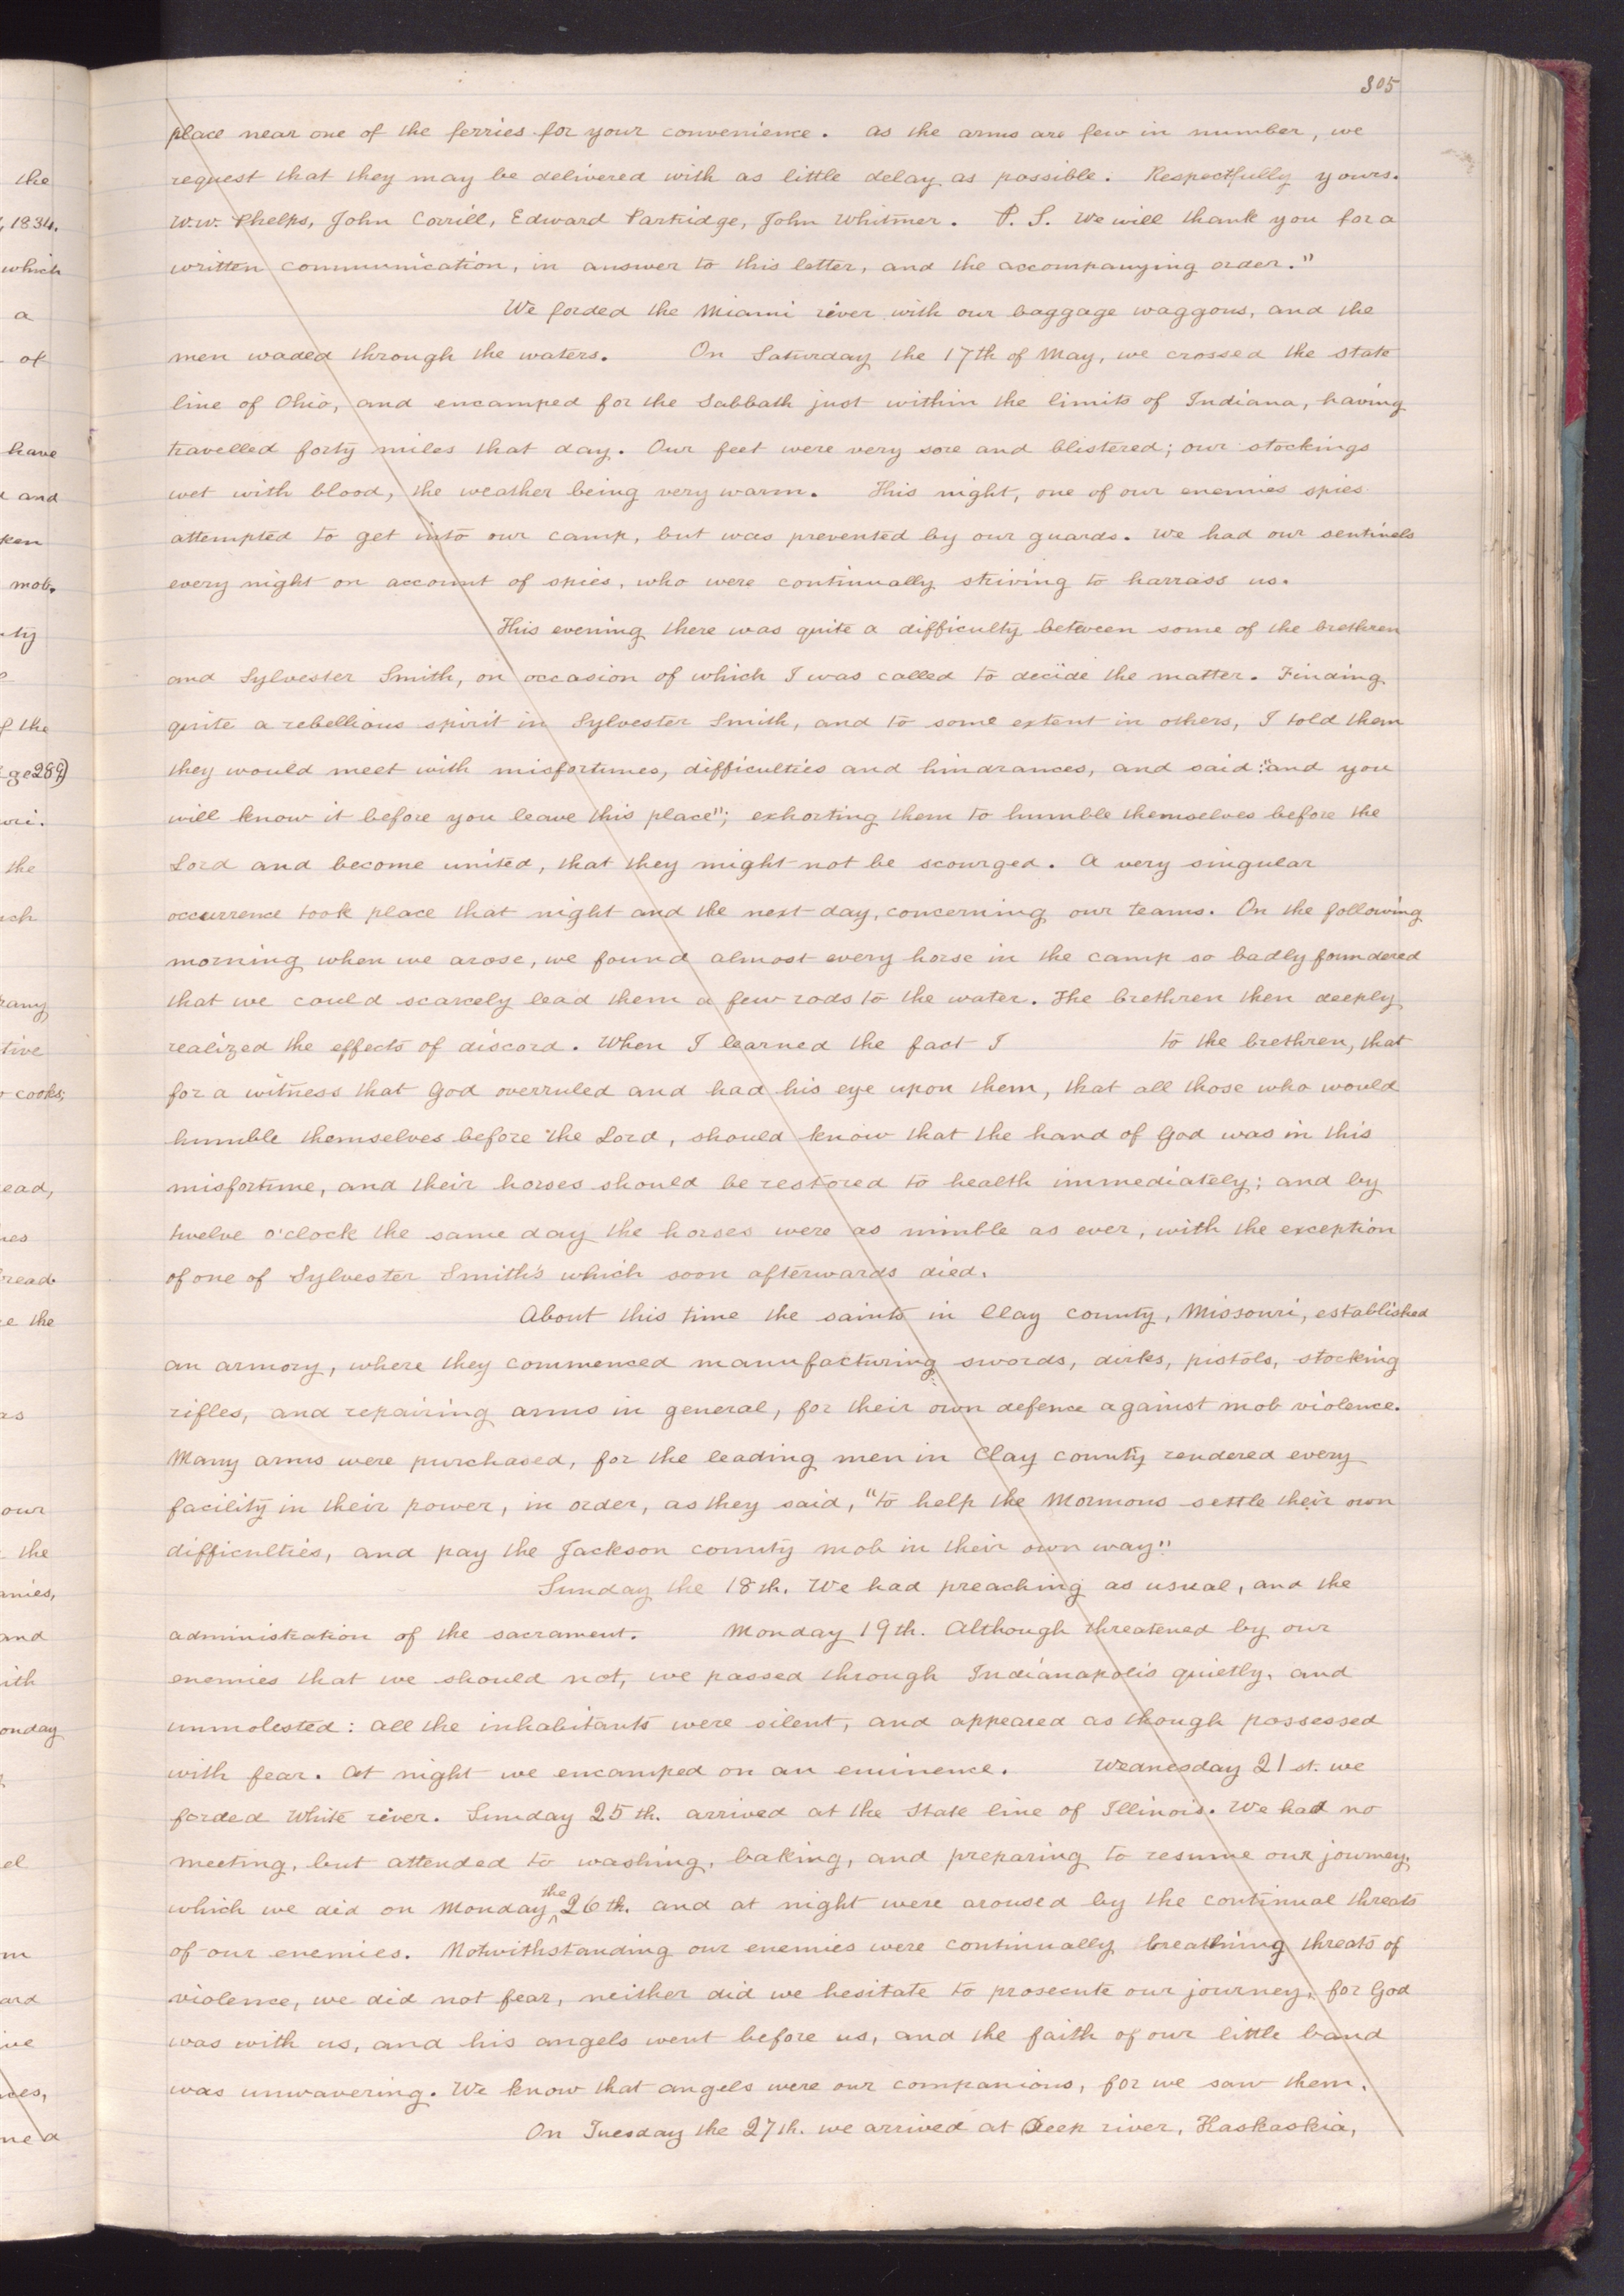 305
place near one of the ferries for your convenience. As the arms are few in number, we
request that they may be delivered with as little delay as possible. Respectfully yours.
W.W. Phelps, John Corrill, Edward Partridge, John Whitmer. P.S. We will thank you for a
written communication, in answer to this letter, and the accompanying order."
We forded the Miami river with our baggage waggons, and the
men waded through the waters. On Saturday the 17th of May, we crossed the state
line of Ohio, and encamped for the Sabbath just within the limits of Indiana, having
travelled forty miles that day. Our feet were very sore and blistered; our stockings
wet with blood, the weather being very warm. This night, one of our enemies spies
attempted to get into our camp, but was prevented by our guards. We had our sentinels
every night on account of spies, who were continually striving to harrass us.
This evening there was quite a difficulty between some of the brethren
and Sylvester Smith, on occasion of which I was called to decide the matter. Finding
quite a rebellious spirit in Sylvester Smith, and to some extent in others, I told them
they would meet with misfortunes, difficulties and hindrances, and said: "and you
will know it before you leave this place"; exhorting them to humble themselves before the
Lord and become united, that they might not be scourged. A very singular
occurrence took place that night and the next day, concerning our teams. On the following
morning when we arose, we found almost every horse in the camp so badly foundered
that we could scarcely lead them a few rods to the water. The brethren then deeply
realized the effects of discord. When I learned the fact I to the brethren, that
for a witness that God overruled and had his eye upon them, that all those who would
humble themselves before the Lord, should know that the hand of God was in this
misfortune, and their horses should be restored to health immediately; and by
twelve o'clock the same day the horses were as nimble as ever, with the exception
of one of Sylvester Smith's which soon afterwards died.
About this time the saints in Clay county, Missouri, established
an armory, where they commenced manufacturing swords, dirks, pistols, stocking
rifles, and repairing arms in general, for their own defence against mob violence.
Many arms were purchased, for the leading men in Clay county rendered every
facility in their power, in order, as they said, "to help the Mormons settle their own
difficulties, and pay the Jackson county mob in their own way".
Sunday the 18th. We had preaching as usual, and the
administration of the sacrament. Monday 19th. Although threatened by our
enemies that we should not, we passed through Indianapolis quietly, and
unmolested: all the inhabitants were silent, and appeared as though possessed
with fear. At night we encamped on an eminence. Wednesday 21st. we
forded White river. Sunday 25th. arrived at the State line of Illinois. We had no
meeting, but attended to washing, baking, and preparing to resume our journey,
which we did on Monday the 26th. and at night were aroused by the continual threats
of our enemies. Notwithstanding our enemies were continually breathing threats of
violence, we did not fear, neither did we hesitate to prosecute our journey, for God
was with us, and his angels went before us, and the faith of our little band
was unwavering. We know that angels were our companions, for we saw them.
On Tuesday the 27th. we arrived at Deep river, Haskaskia,